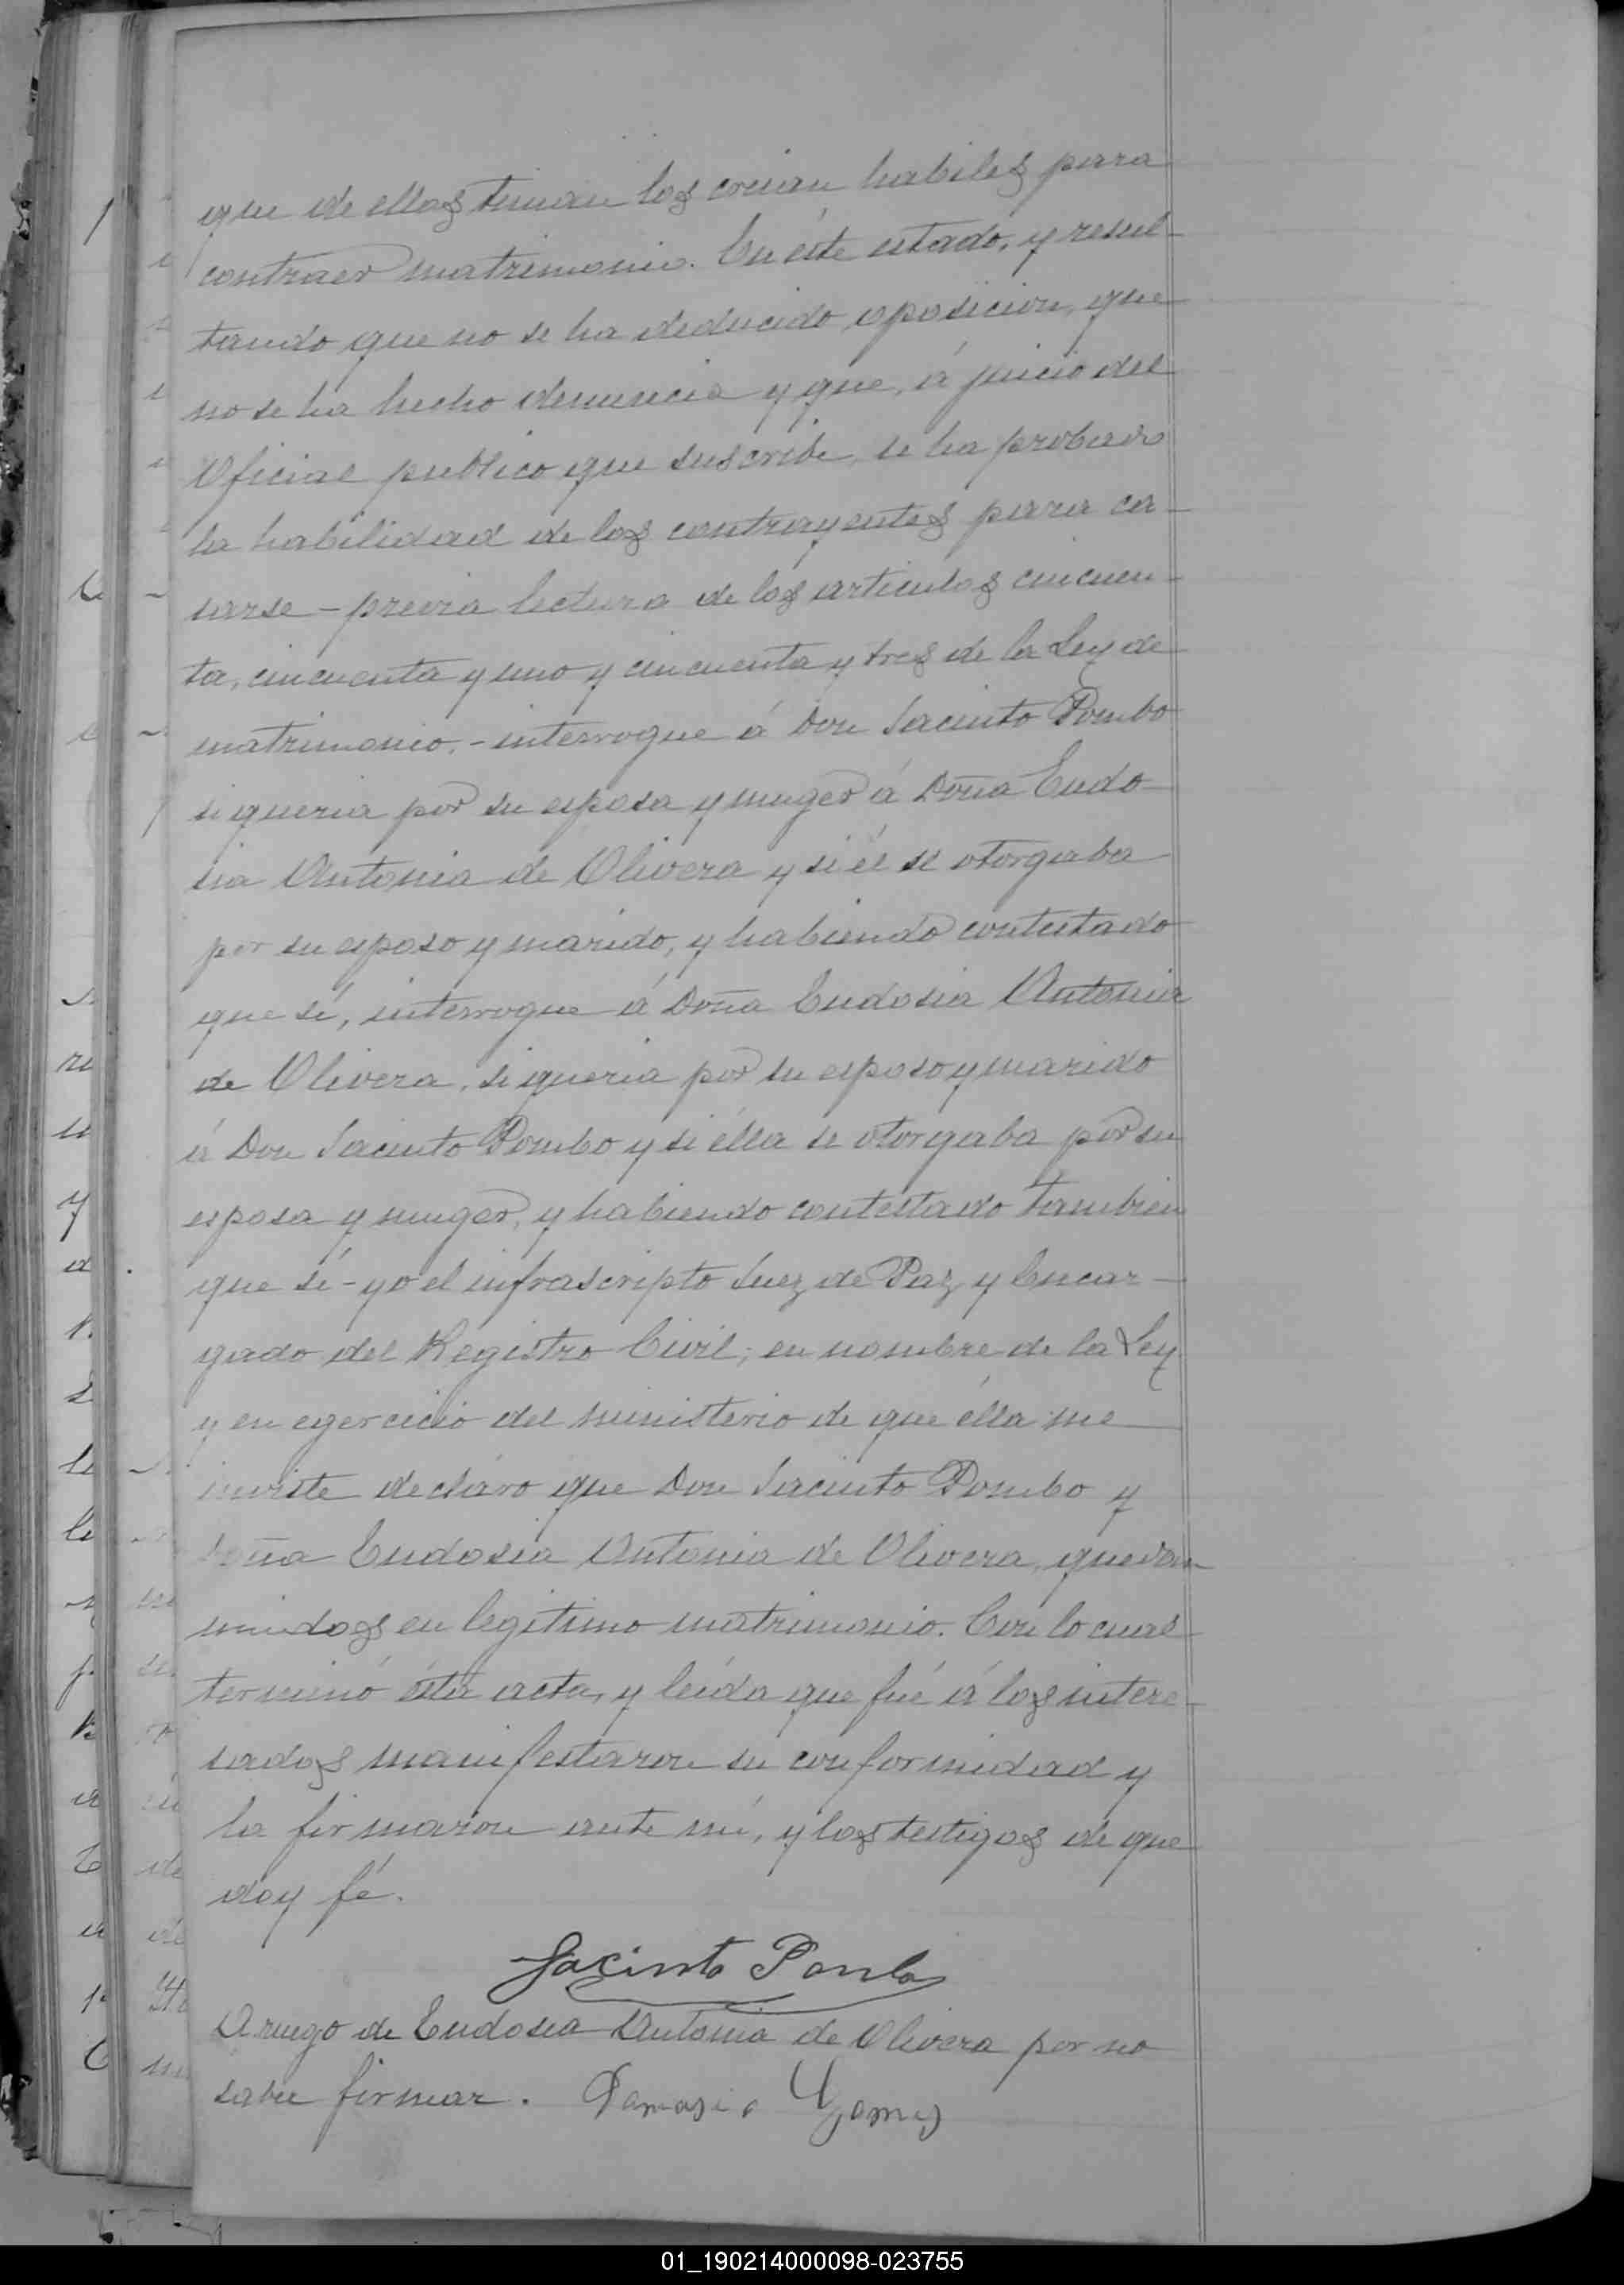 que de ellos tenian los creian habiles para
contraer matrimonio. En éste estado, y resul-
tando que no se ha deducido oposicion, que
no se ha hecho denuncia y que, á juicio del
Oficial publico que suscribe, se ha probado
la habilidad de los contrayentes para ca-
sarse - previa lectura de los articulos cincuen-
ta, cincuenta y uno y cincuenta y tres de la Ley de
matrimonio, - interrogue á Don Jacinto Pombo
si queria por su esposa y muger á Doña Eudo-
sia Antonia de Olivera y si él se otorgaba
por su esposo y marido, y habiendo contestado
que sí, interrogue á Doña Eudosia Antonia
de Olivera, si queria por su esposo y marido
á Don Jacinto Pombo y si élla se otorgaba por su
esposa y muger, y habiendo contestado tambien
que sí - yo el infrascripto Juez de Paz y Encar-
gado del Registro Civil; en nombre de la Ley
y en egercicio del ministerio de que élla me
inviste declaro que Don Jacinto Pombo y
Doña Eudosia Antonia de Olivera, quedan
unidos en legitimo matrimonio. Con lo cual
terminó ésta acta, y leída que fué á los intere-
sados manifestaron su conformidad y
la firmaron ante mí, y los testigos de que
doy fé.
Jacinto Pombo
A ruego de Eudosia Antonia de Olivera por no
saber firmar. Damasio Gomes
01_190214000098-023755